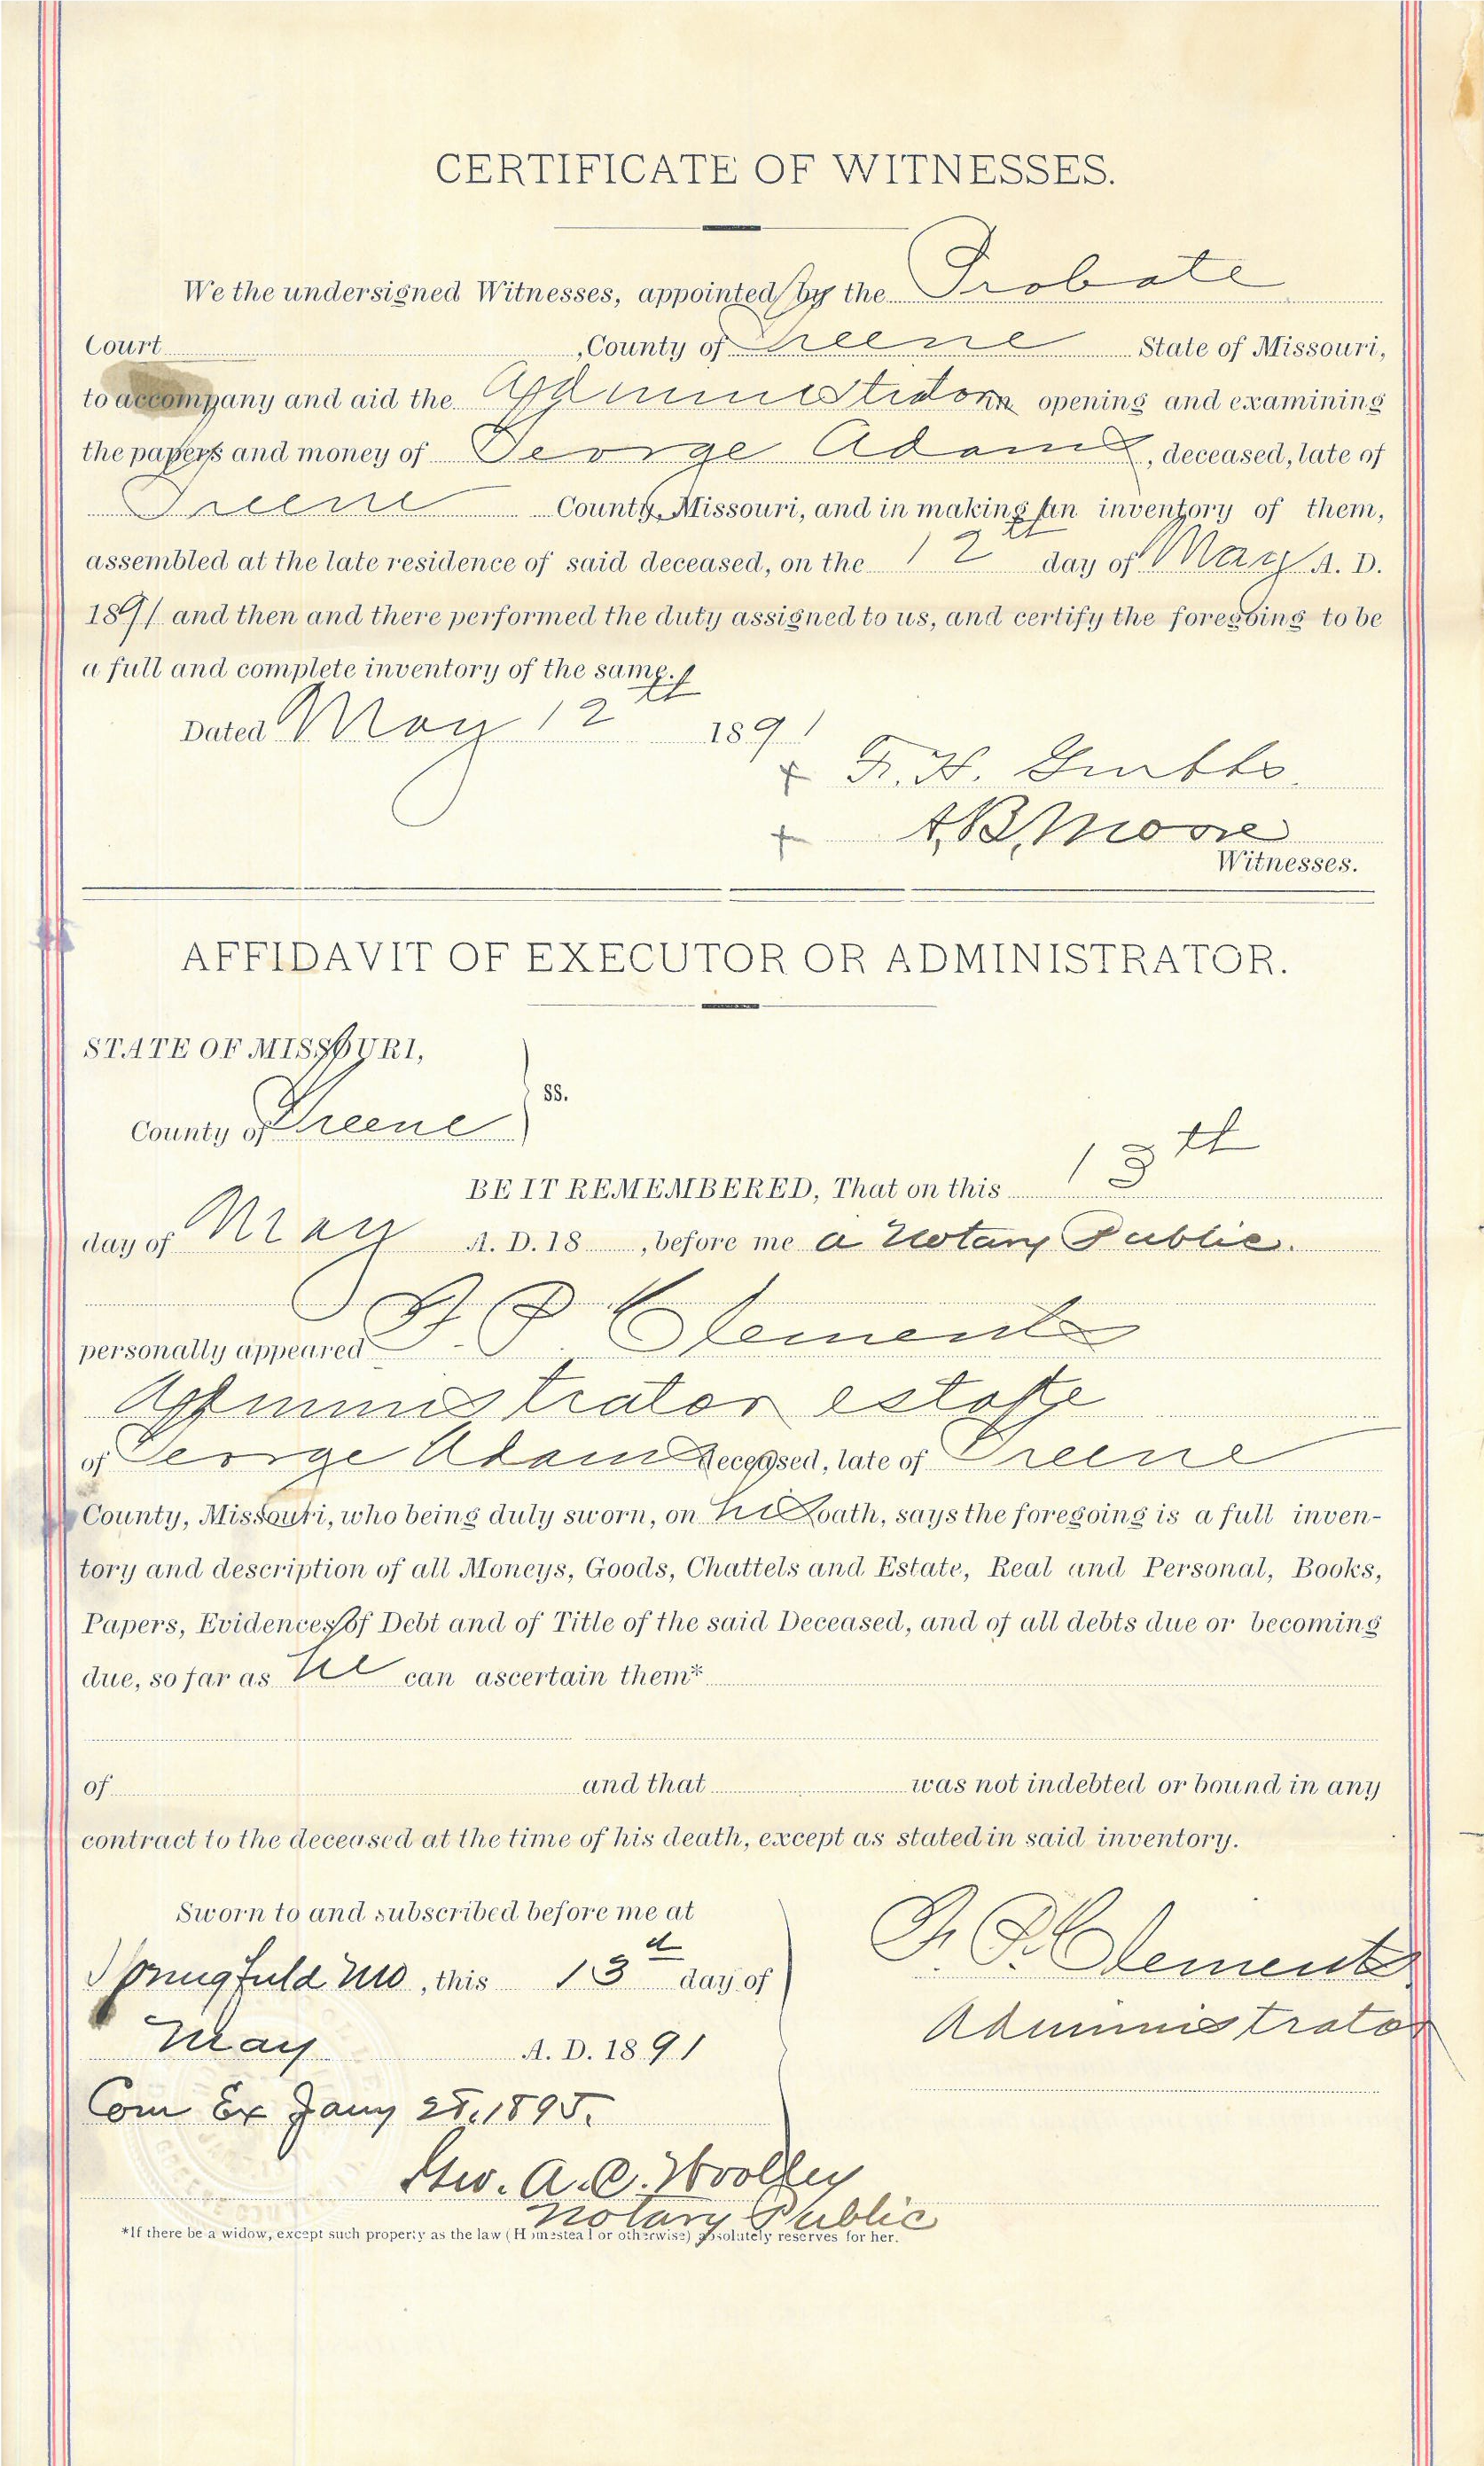 CERTIFICATE OF WITNESSES.
We the undersigned Witnesses, appointed by the Probate
Court , County of Greene State of Missouri,
to accompany and aid the Administrator in opening and examining
the papers and money of George Adams, deceased, late of
Greene County, Missouri, and in making an inventory of them,
assembled at the late residence of said deceased, on the 12th day of May A. D.
1891 and then and there performed the duty assigned to us, and certify the foregoing to be
a full and complete inventory of the same.
Dated May 12th 1891
x F. H.
x A. B. Moore
Witnesses.
AFFIDAVIT OF EXECUTOR OR ADMINISTRATOR.
STATE OF MISSOURI,
ss.
County of Greene
BE IT REMEMBERED, That on this 13th
day of May A. D. 18 , before me a Notary Public.
personally appeared F. P. Clements
Administrator estate
of George Adams deceased, late of Greene
County, Missouri, who being duly sworn, on his oath, says the foregoing is a full inven-
tory and description of all Moneys, Goods, Chattels and Estate, Real and Personal, Books,
Papers, Evidences of Debt and of Title of the said Deceased, and of all debts due or becoming
due, so far as he can ascertain them*
of and that was not indebted or bound in any
contract to the deceased at the time of his death, except as stated in said inventory.
Sworn to and subscribed before me at
Springfield Mo, this 13th day of
May A. D. 1891
F. P. Clements
Administrator
Com Ex Jany 28, 1895.
Geo. A. C. Woolley
Notary Public
*If there be a widow, except such property as the law (Homestead or otherwise) absolutely reserves for her.